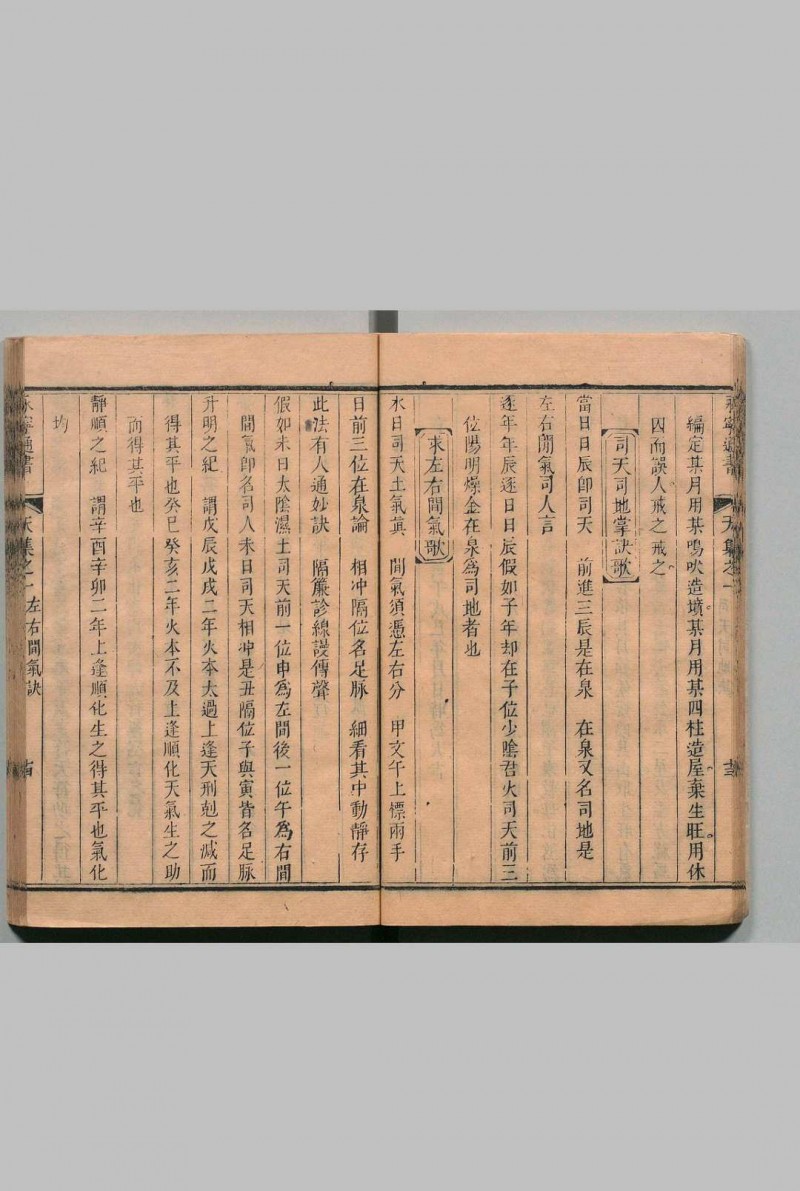 編定某月用某鳴吠造墳某月用某四柱造屋棄生旺用休
囚而誤人戒之戒之
司天司地掌訣歌
當日日辰卽司天　前進三辰是在泉　在泉又名司地是
左右間氣司人言
逐年年辰逐日日辰假如子年却在子位少陰君火司天前三
位陽明燥金在泉為司地者也
求左右間氣歌
木日司天土氣真　間氣須憑左右分　甲文午上慓兩手
日前三位在泉論　相冲隔位名足脉　細看其中動靜存
此法有人通妙訣　隔簾診線謾傳聲
假如未日太陰濕土司天前一位申為左間後一位午為右間
間氣卽名司人未日司天相冲是丑隔位子與寅皆名足脉
升明之紀　謂戊辰戊戌二年火本大過上逢天刑剋之減而
得其平也癸巳癸亥二年火本不及上逢順化天氣生之助
而得其平也
靜順之紀　謂辛酉辛卯二年上逢順化生之得其平也氣化
均
永寧通書　天集之一　左右間氣訣